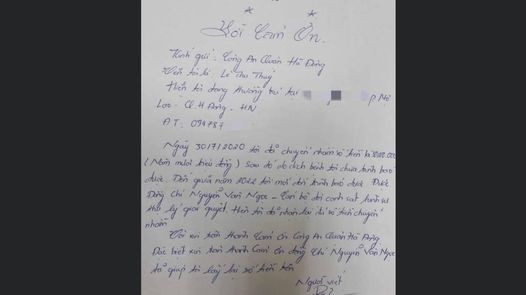 Lời Cảm Ơn.
Kính gửi: Công An Quận Hà Đông
Tên tôi là: Lê Thu Thuỷ
Hiện tôi đang thường trú tại P Mộ
Lao - Q. H Đông - HN
ĐT: 094787
Ngày 30/7/2020 tôi đã chuyển nhầm số tiền là
(Năm mươi triệu đồng) sau đó do dịch bệnh tôi chưa trình báo
được. Đến giữa năm 2022 tôi mới đi trình báo được. Được
Đồng chí Nguyễn Văn Ngọc - Cán bộ đội cảnh sát hình sự
thụ lý giải quyết. Hiện tôi đã nhận lại đủ số tiền chuyển
nhầm
Tôi xin chân thành Cảm ơn Công An Quận Hà Đông
Đặc biệt xin chân thành Cảm ơn đồng chí Nguyễn Văn Ngọc
đã giúp tôi lấy lại số tiền trên
Người viết